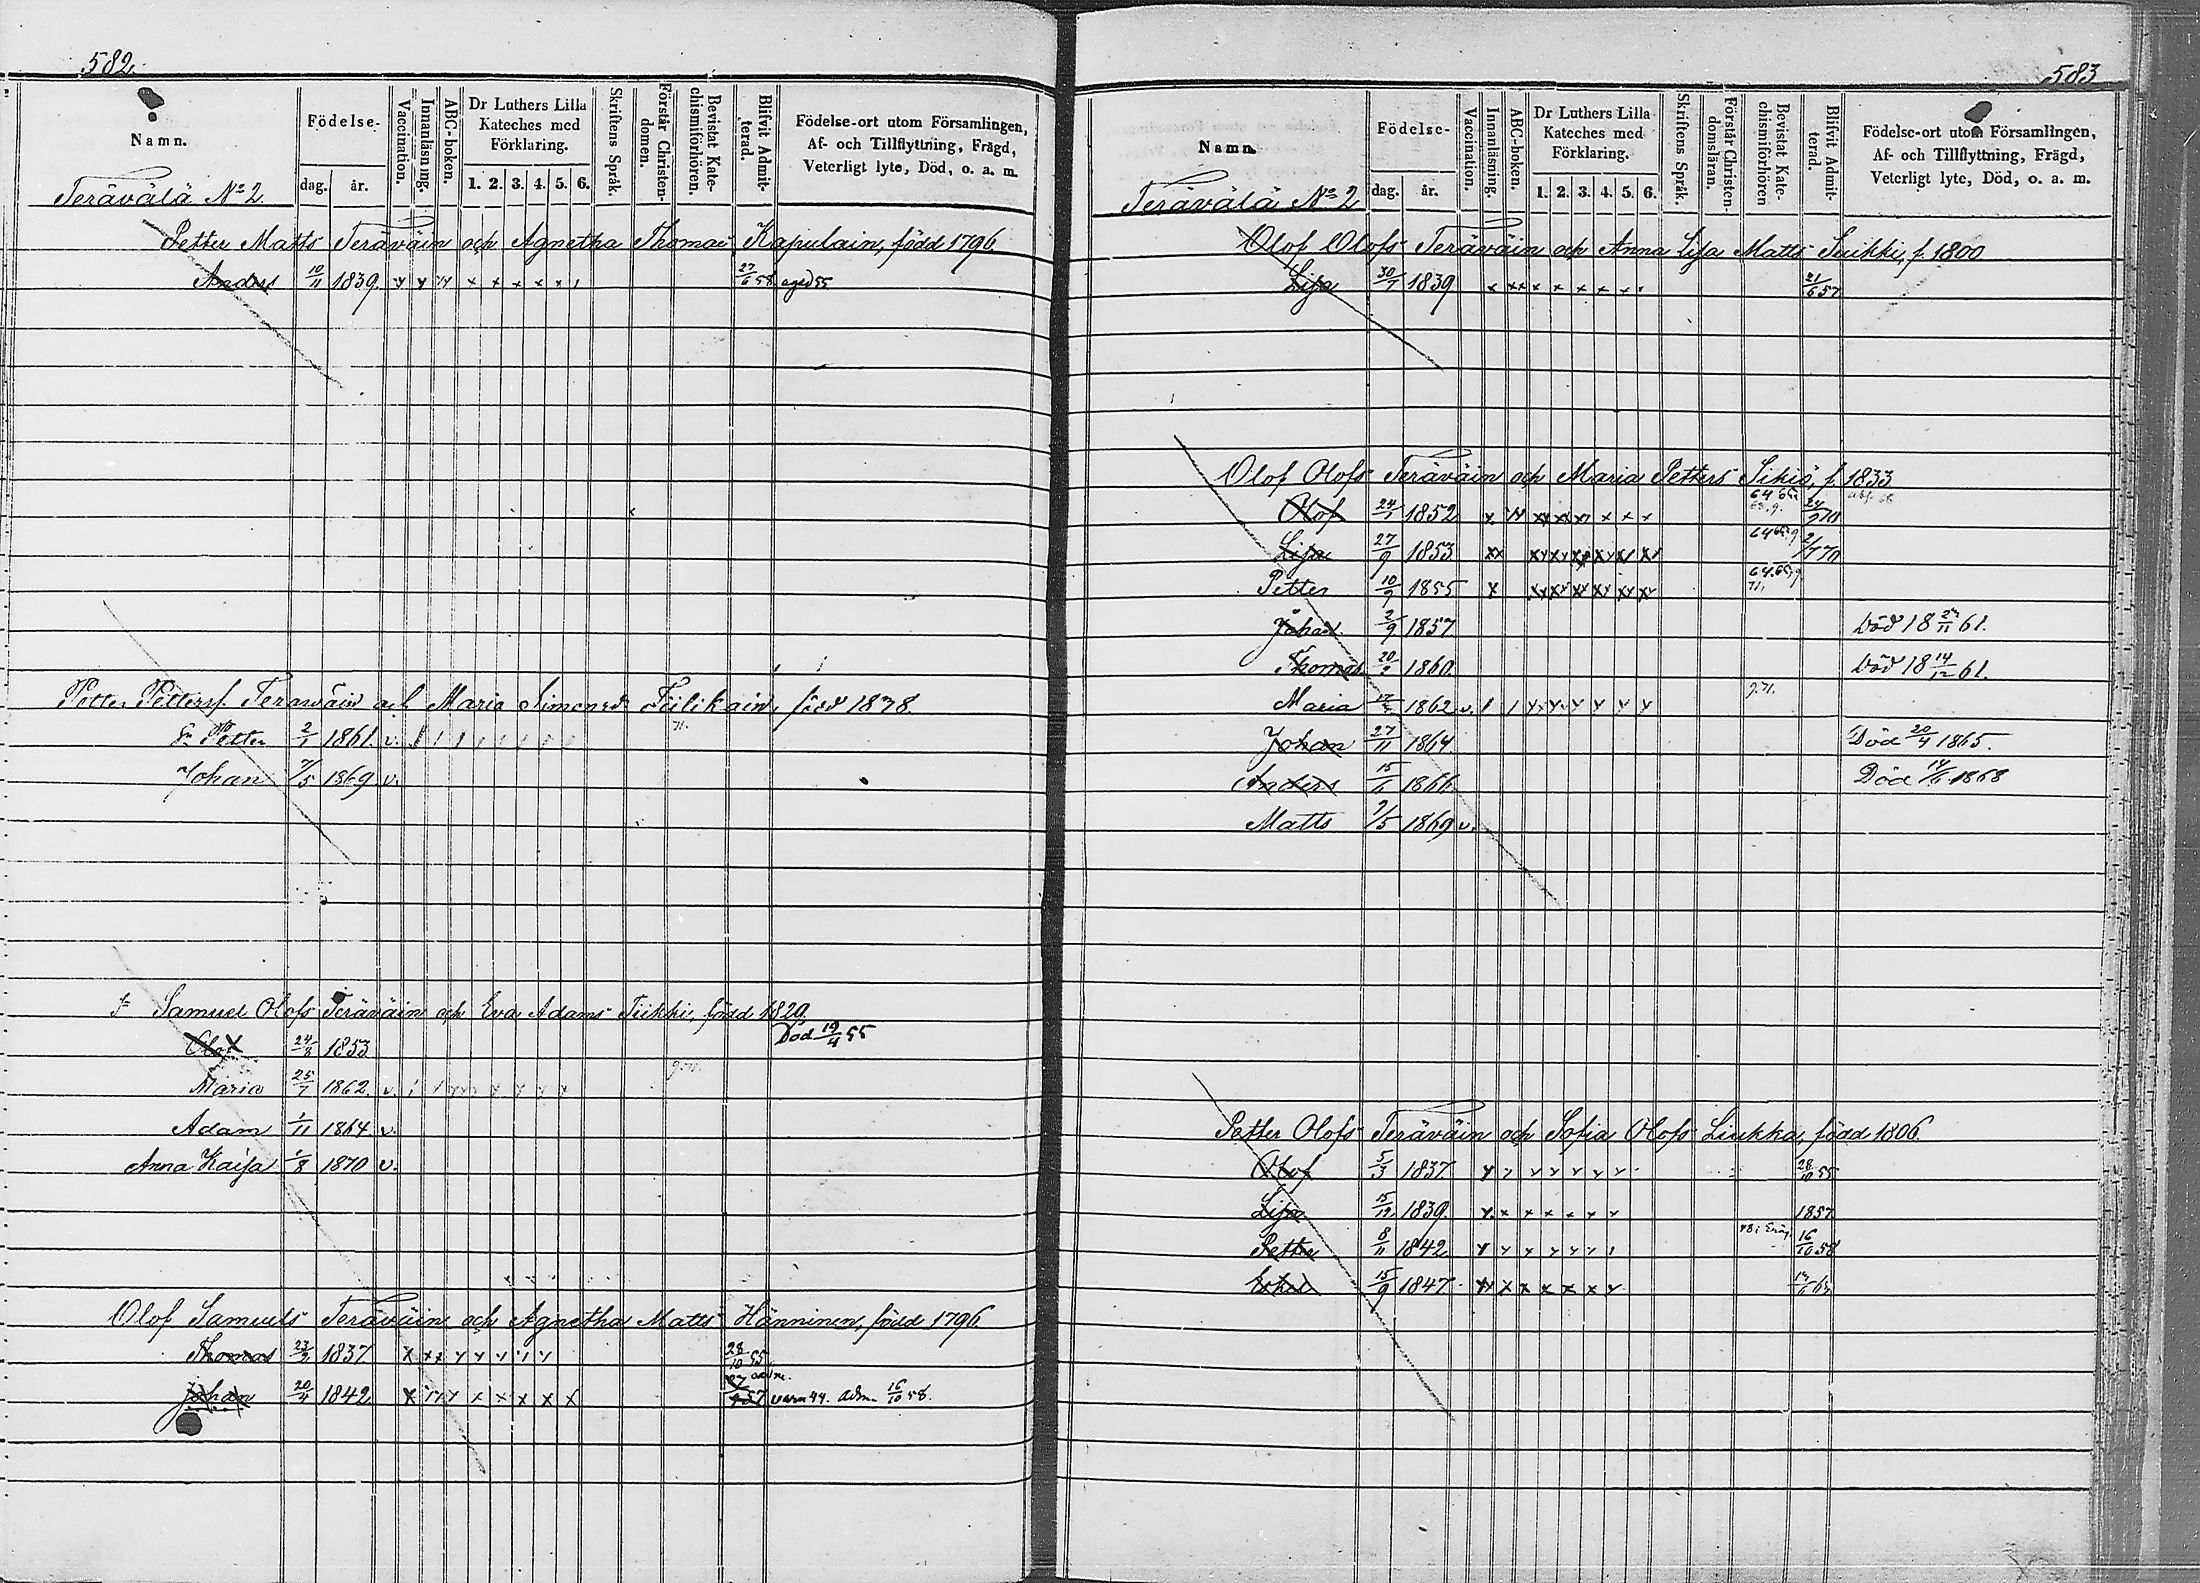 582.
Namn.
Födelse-
dag. år.
Vaccination.
Innanläsning.
ABC-boken.
Dr Luthers Lilla Kateches med Förklaring.
1. 2. 3. 4. 5. 6.
Skriftens Språk.
Förstår Christen-domen.
Bevistat Kate-chismiförhören.
Blifvit Admit-terad.
Födelse-ort utom Församlingen,
Af- och Tillflyttning, Frägd,
Veterligt lyte, Död, o. a. m.
Terävälä No 2
Petter Matts Teräväin och Agnetha Thomas Kapulain, född 1796
Anders 10/11 1839 27/6 58
Petter Petterss. Teräväin och Maria Simonsd
Petter 2/1 1861. v. 71.
Johan 7/5 1869 v.
Samuel Olofs Teräväin och Eva Adams Tiikki, född 1829
Olof 24/8 1853 Död 19/4 55
Maria 25/7 1862. v.
Adam 1/11 1864. v.
Anna Kaisa 1/8 1870 v.
Olof Samuels Teräväin och Agnetha Matts Hänninen, född 1796
Thomas 23/2 1837 28/10 55
Johan 20/4 1842 adm. 16/10 58.
583
Namn.
Födelse-
dag. år.
Vaccination.
Innanläsning.
ABC-boken.
Dr Luthers Lilla Kateches med Förklaring.
1. 2. 3. 4. 5. 6.
Skriftens Språk.
Förstår Christen-domsläran.
Bevistat Kate-chismiförhören
Blifvit Admit-terad.
Födelse-ort utom Församlingen,
Af- och Tillflyttning, Frägd,
Veterligt lyte, Död, o. a. m.
Terävälä No 2
Olof Olofs Teräväin och Anna Lisa Matts f. 1800
Lisa 30/7 1839 21/6 57
Olof Olofs Teräväin och Maria Petters Sikiö, f. 1833
Olof 24/1 1852
Lisa 27/9 1853 2/7 70
Petter 10/9 1855
Johan 2/9 1857 Död 18 24/11 61.
Thomas 20/9 1860. Död 18 14/12 61.
Maria 1862 v.
Johan 27/11 1864 Död 20/4 1865.
Anders 15/6 1866 Död 14/6 1868
Matts 7/5 1869 v.
Petter Olofs Teräväin och Sofia Olofs Liukka, född 1806.
Olof 5/3 1837 28/10 55
Lisa 15/12 1839. 1857
Petter 8/11 1842 16/10 58
15/9 1847